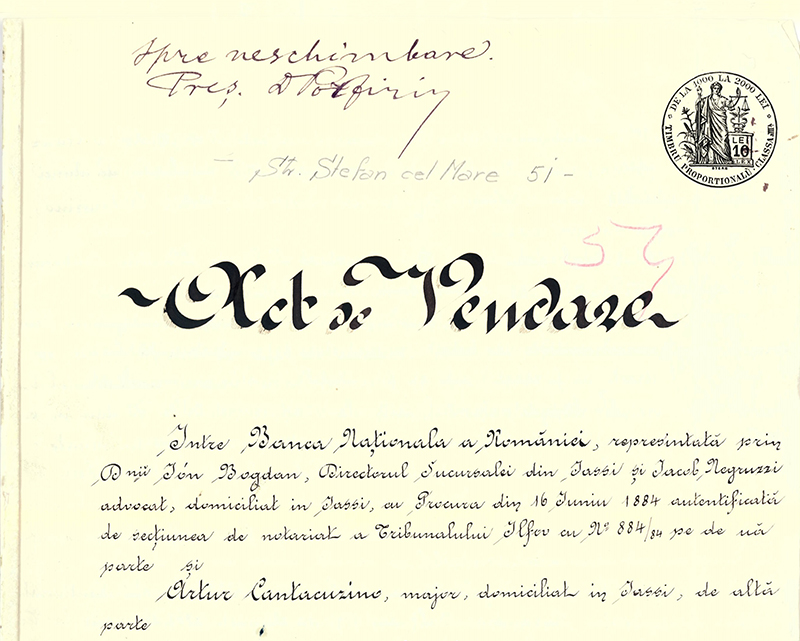 spre neschimbare.
Preș. D Porfiriu
DE LA 1000 LA 2000 LEI
LEI
10
LEX
TIMBRU PROPORTIONALŬ CLASSA
– Str. Stefan cel Mare 51 –
Act de Vendare
Intre Banca Naționala a României, represintată prin
Dnii Ión Bogdan, Directorul Sucursalei din Iassi și Iacob Negruzzi
advocat, domiciliat in Iassi, cu Procura din 16 Iuniu 1884 autentificată
de secțiunea de notariat a Tribunalului Ilfov cu No 884/84 pe de uă
parte și
Artur Cantacuzino, major, domiciliat in Iassi, de altă
parte